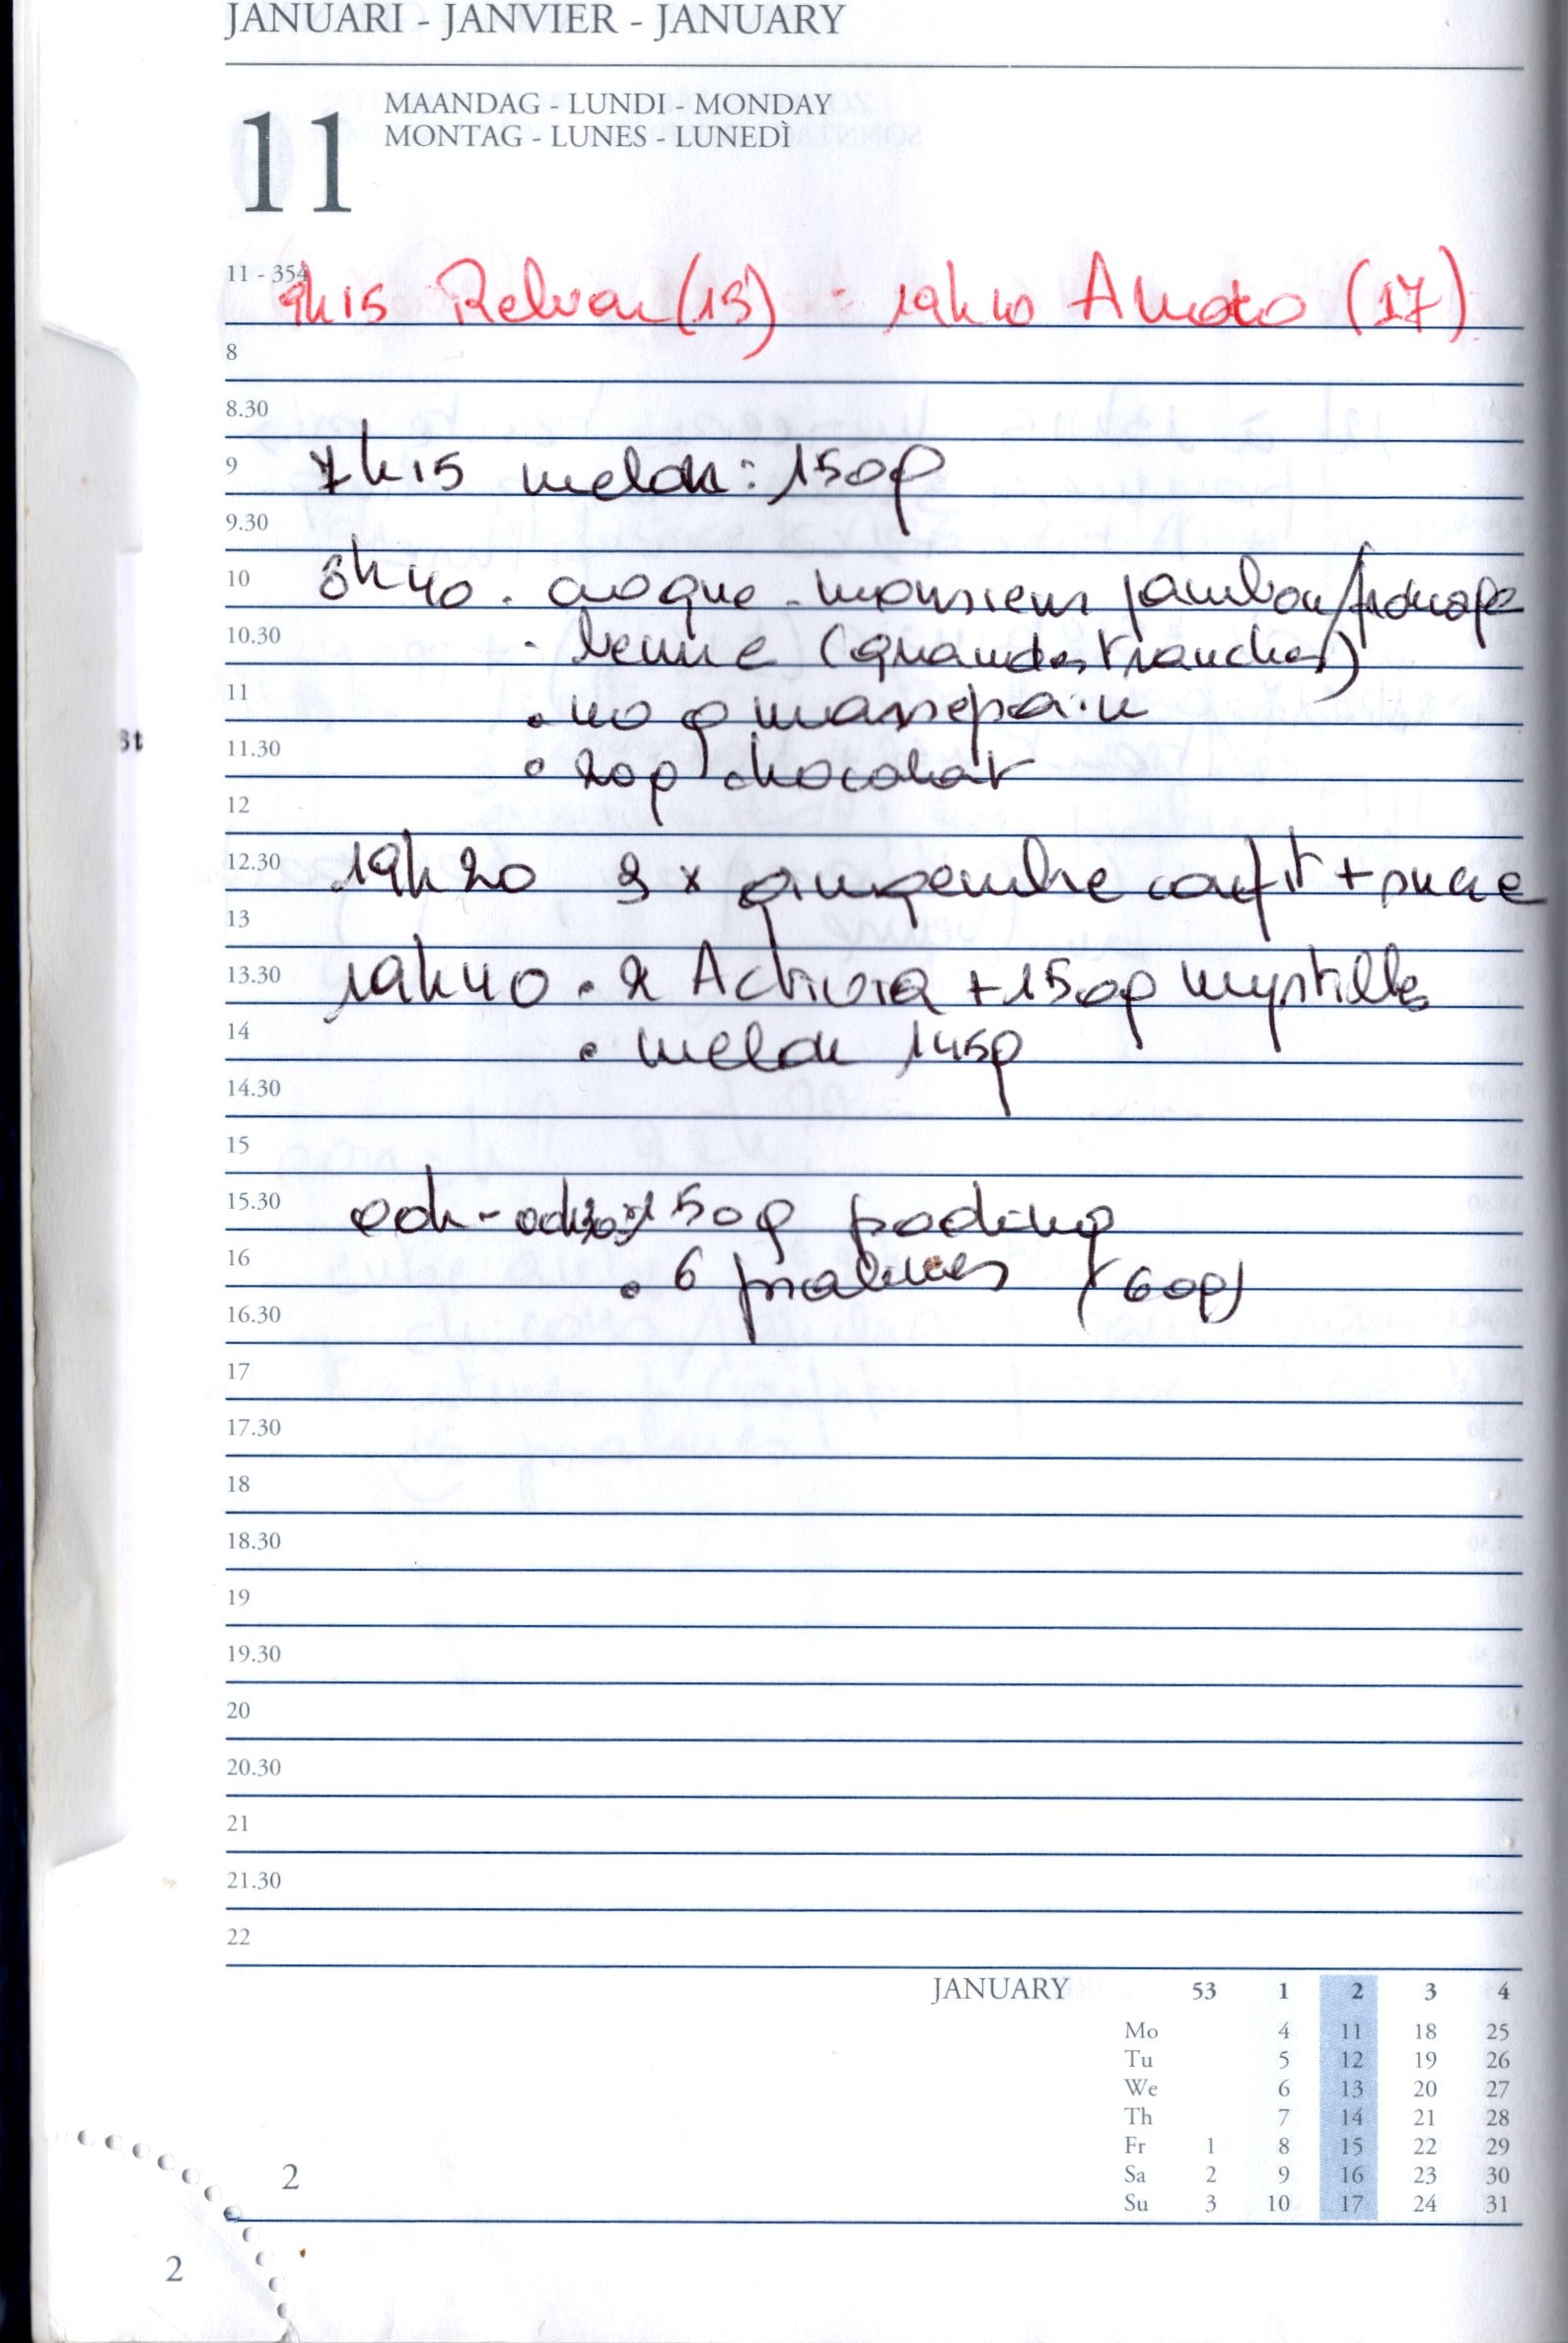 JANUARI - JANVIER - JANUARY
MAANDAG - LUNDI - MONDAY
11 MONTAG - LUNES - LUNEDÌ
11 - 354
9h15 (15) - 19h40 (17)
8
8.30
9 7h15 melon : 150g
9.30
10 8h40 . croque-monsieur jambon/fromage
10.30 - beurre (grandes tranches)
11 . 40 g massepain
11.30 . 20g chocolat
12
12.30 19h20 3 x gingembre confit + sucre
13
13.30 19h40 . 2 Activia + 150g myrtilles
14 . melon 145g
14.30
15
15.30 00h-00h30 150g pudding
16 . 6 pralines (60g)
16.30
17
17.30
18
18.30
19
19.30
20
20.30
21
21.30
22
JANUARY 53 1 2 3 4
Mo 4 11 18 25
Tu 5 12 19 26
We 6 13 20 27
Th 7 14 21 28
Fr 1 8 15 22 29
Sa 2 9 16 23 30
Su 3 10 17 24 31
2
2